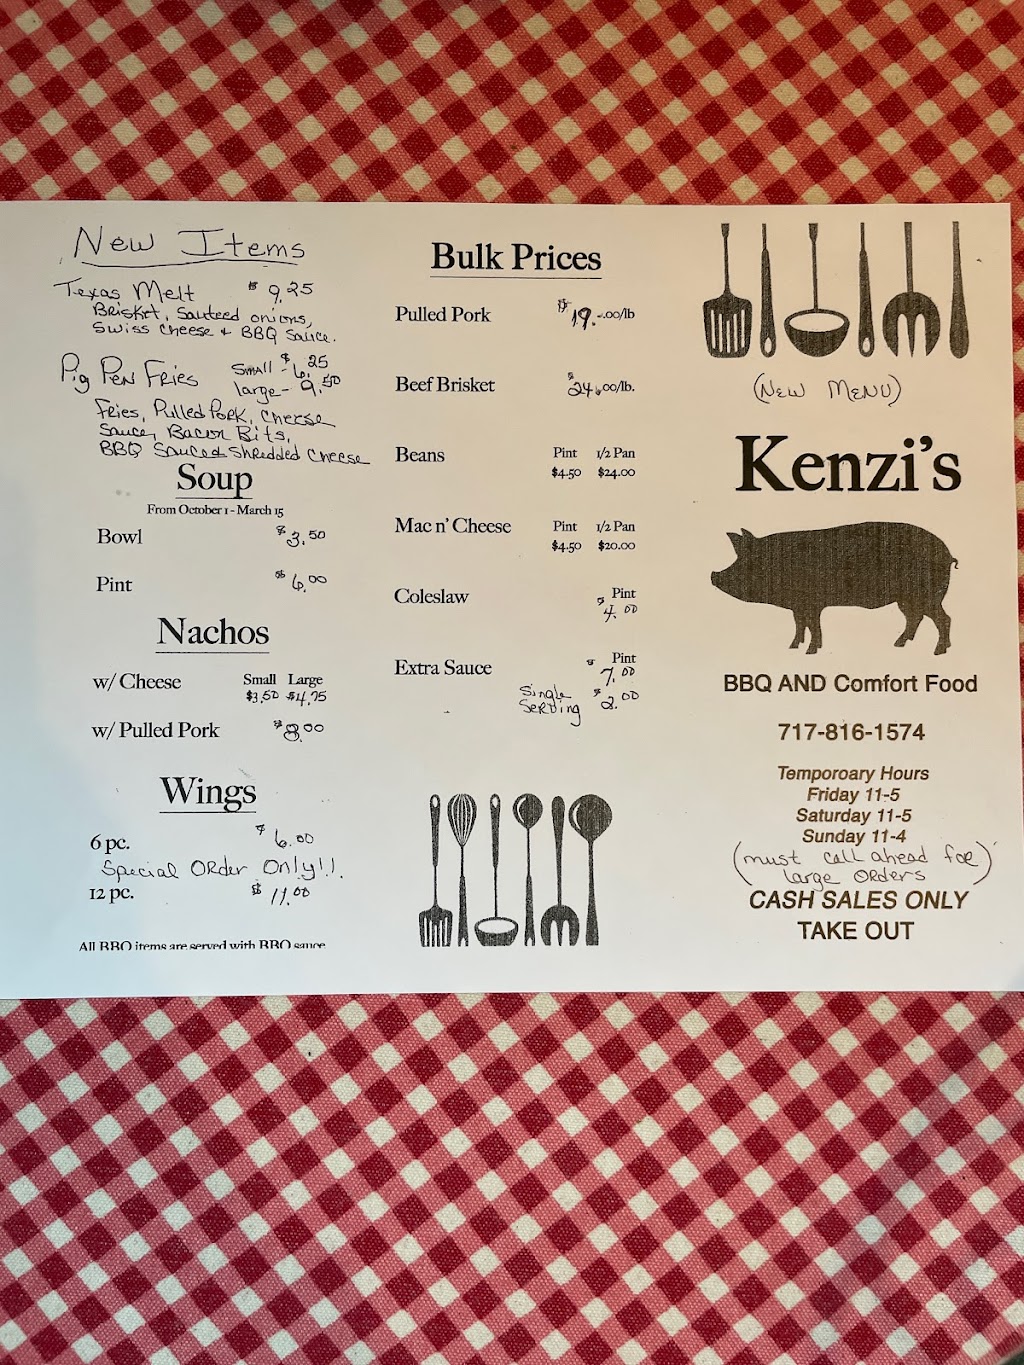 New Items
Texas Melt $9.25
Brisket, Sauteed onions,
Swiss Cheese & BBQ Sauce.
Pig Pen Fries Small - $6.25
large - 9.50
Fries, Pulled Pork, Cheese
Sauce, Bacon Bits,
BBQ Sauce & Shredded Cheese
Soup
From October 1 - March 15
Bowl $3.50
Pint $6.00
Nachos
w/ Cheese Small Large
$3.50 $4.75
w/ Pulled Pork $8.00
Wings
6 pc. $6.00
Special Order Only!!
12 pc. $11.00
All BBQ items are served with BBQ sauce
Bulk Prices
Pulled Pork $19.00/lb
Beef Brisket $24.00/lb.
Beans Pint 1/2 Pan
$4.50 $24.00
Mac n' Cheese Pint 1/2 Pan
$4.50 $20.00
Coleslaw Pint
$4.00
Extra Sauce Pint
$7.00
Single Serving $2.00
(New Menu)
Kenzi's
BBQ AND Comfort Food
717-816-1574
Temporoary Hours
Friday 11-5
Saturday 11-5
Sunday 11-4
(must call ahead for
large orders)
CASH SALES ONLY
TAKE OUT